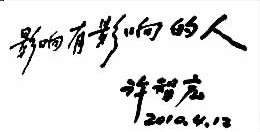 影响有影响的人
许智宏
2010.4.12